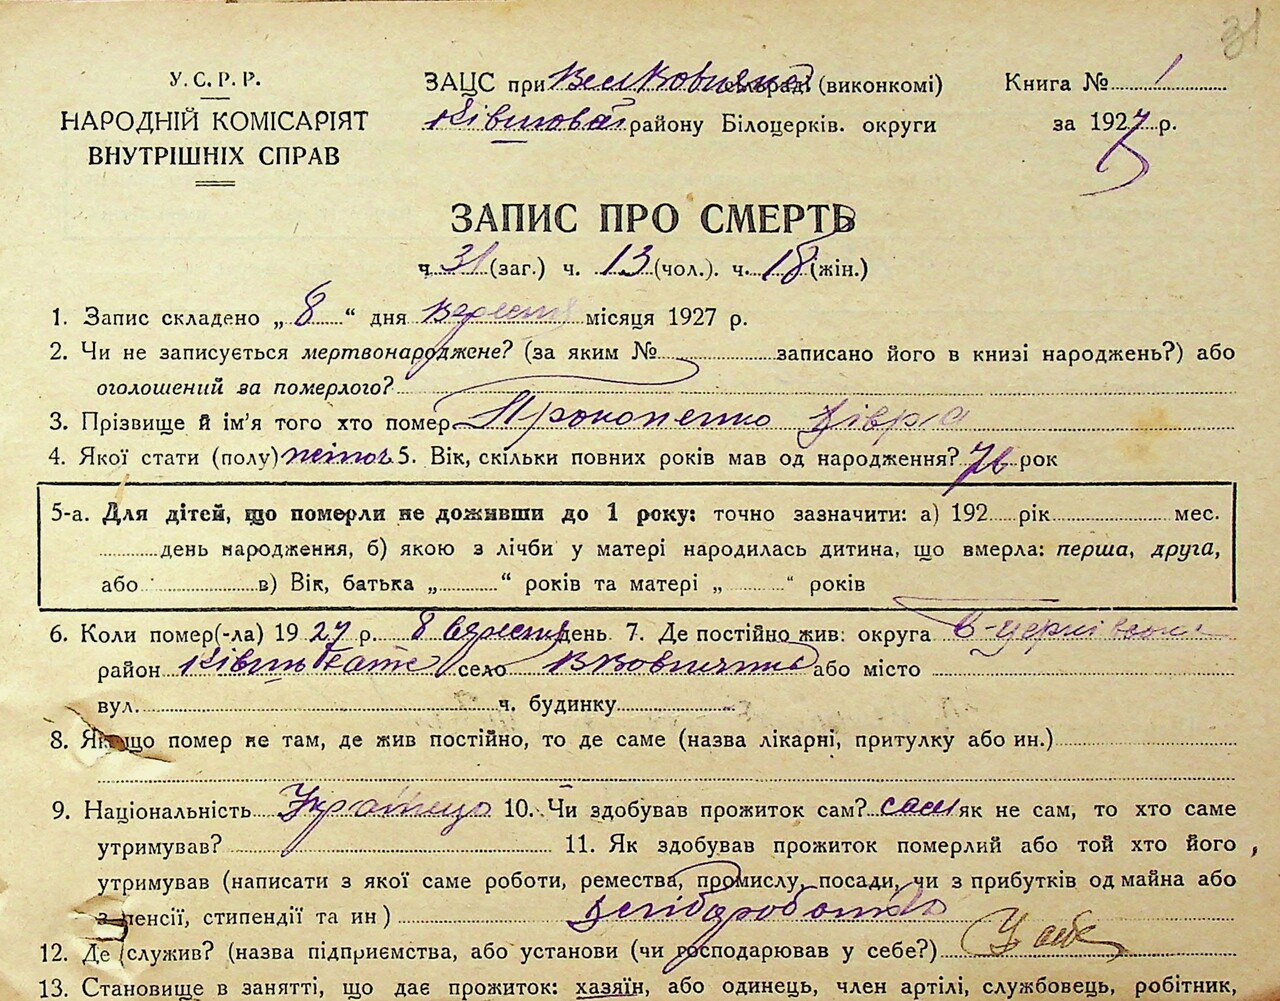 31
У.С.Р.Р.
НАРОДНІЙ КОМІСАРІЯТ
ВНУТРІШНІХ СПРАВ
ЗАЦС при (виконкомі)
району Білоцерків. округи
Книга № 1
за 1927 р.
ЗАПИС ПРО СМЕРТЬ
ч. 31 (заг.) ч. 13 (чол.). ч. 18 (жін.)
1. Запис складено „ 8 “ дня вересня місяця 1927 р.
2. Чи не записується мертвонароджене? (за яким № записано його в книзі народжень?) або
оголошений за померлого?
3. Прізвище й ім'я того хто помер Прокопенко
4. Якої стати (полу) 5. Вік, скільки повних років мав од народження? рок
5-а. Для дітей, що померли не доживши до 1 року: точно зазначити: а) 192 рік мес.
день народження, б) якою з лічби у матері народилась дитина, що вмерла: перша, друга,
або в) Вік, батька „ “ років та матері „ “ років
6. Коли помер(-ла) 1927 р. 8 вересня день 7. Де постійно жив: округа
район село або місто
вул. ч. будинку
8. Якщо помер не там, де жив постійно, то де саме (назва лікарні, притулку або ин.)
9. Національність 10. Чи здобував прожиток сам? сам як не сам, то хто саме
утримував? 11. Як здобував прожиток померлий або той хто його,
утримував (написати з якої саме роботи, ремества, промислу, посади, чи з прибутків од майна або
з пенсії, стипендії та ин)
12. Де (служив? (назва підприємства, або установи (чи господарював у себе?) У себе
13. Становище в занятті, що дає прожиток: хазяїн, або одинець, член артілі, службовець, робітник,